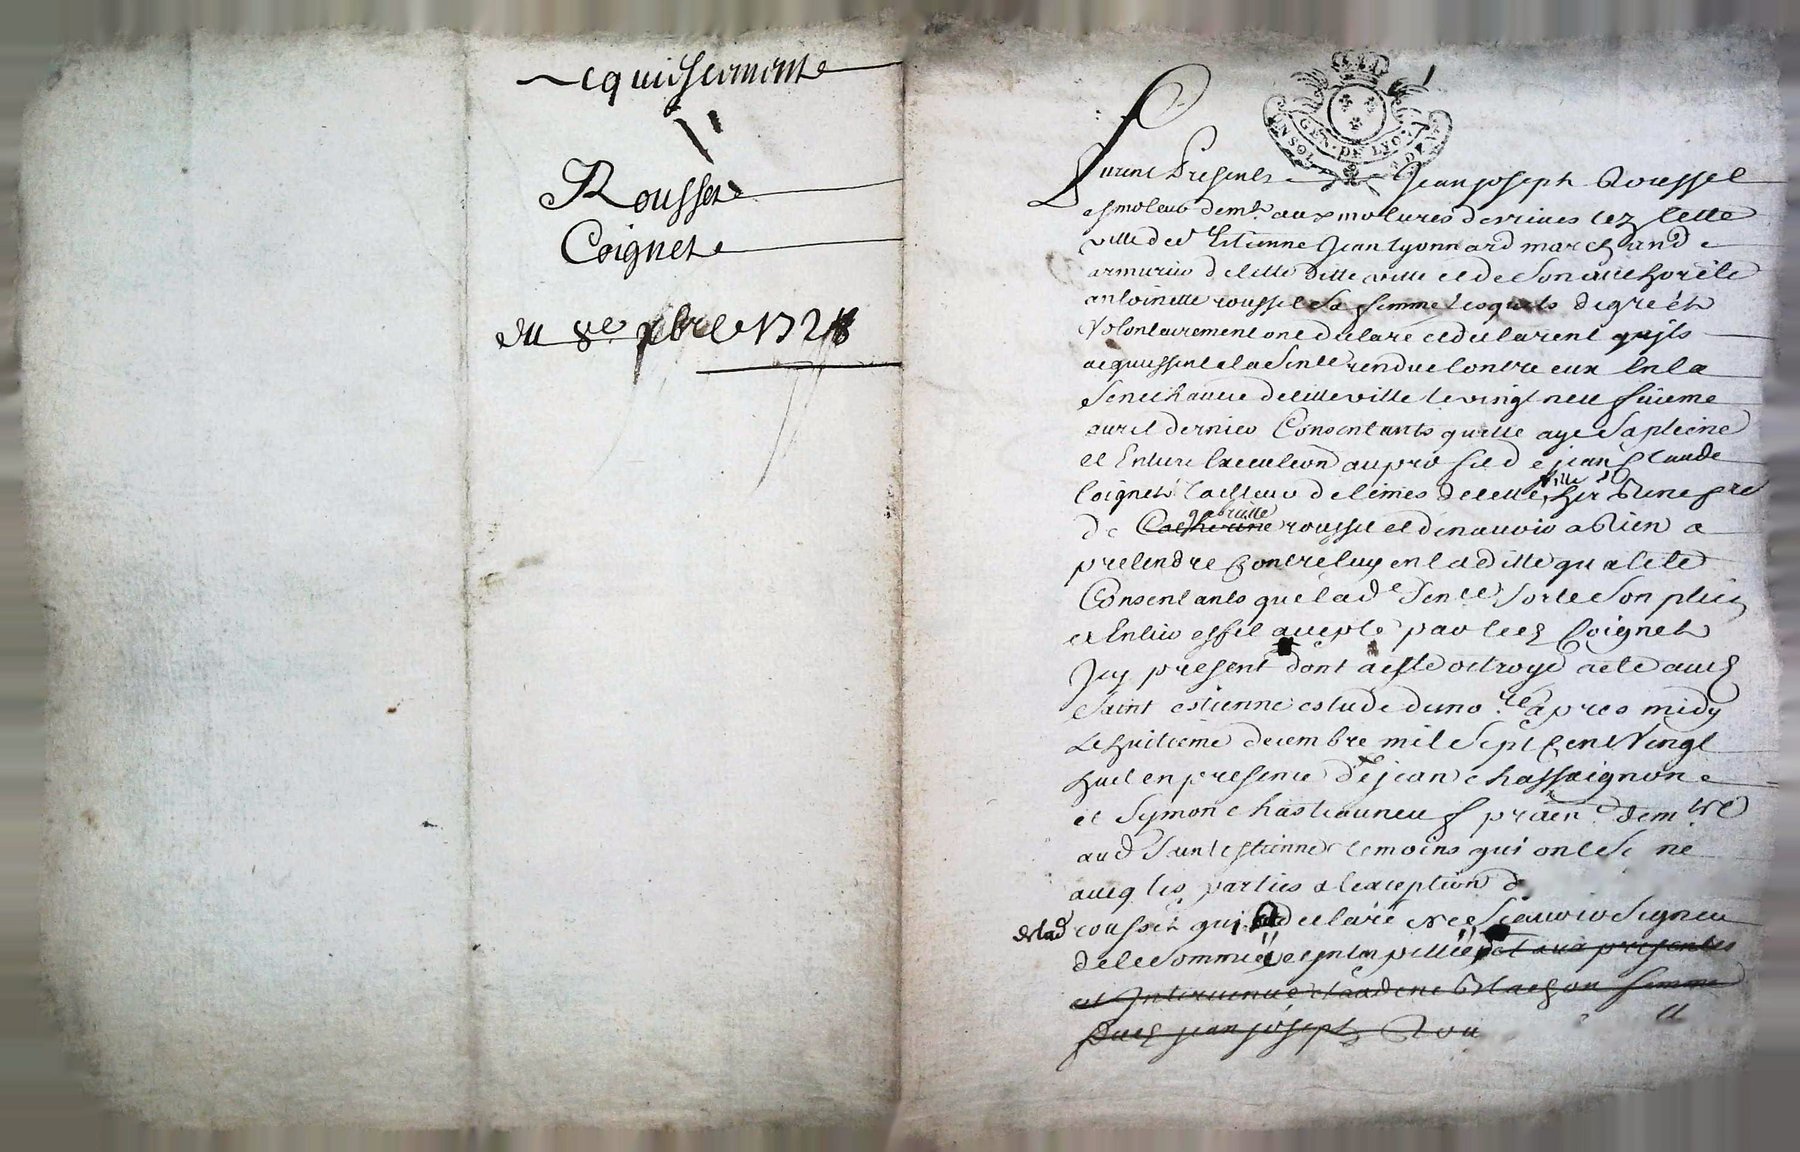 acquiessement
Rousset
Coignet
du 8e xbre 1728
GEN. DE LYON
UN SOL
Furent presents Jean joseph Roussel
esmoleur demt aux molures derives lez cette
ville de St Estienne Jean lyonnard marchand
armurier de cette ditte ville et de son authorité
antoinette roussel sa femme lesquels de gré et
volontairement ont déclaré et déclarent quils
acquiessent a la sence rendue contre eux En la
senechaucée de cette ville le vingt neufuieme
avril dernier Consentants quelle aye sa pleine
et Entiere Execution au profit de jean Claude
Coignet tailleur de limes de cette ville her benefre
de Catherine gabrielle roussel et denauoir a Rien a
pretendre Contre luy en la ditte qualité
Consentants que lad e Sence sorte son plein
et Entier effet accepté par led Coignet
Jcy present dont a esté octroyé acte aud
saint estienne estude du no re apres midy
Le huitieme decembre mil sept Cent Vingt
huit en presence de jean chassaignon
et Symon chasteauneuf praen demts
aud Saint estienne temoins qui ont signé
aueq les parties a lexception d
de lad rousset qui a declaré ne scauoir signer
de ce sommée et Interpellée et aux presentes
est Interuenue claudine Blachon femme
dud jean joseph Rou